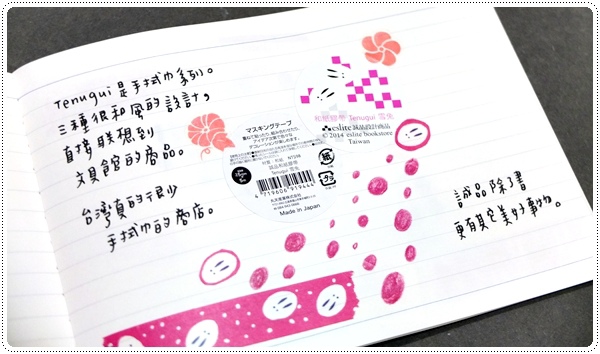 Tenugui是手拭巾系列。
三種很和風的設計，
直接聯想到
文具館的商品。
台灣真的很少
手拭巾的商店。
マスキングテープ
Made in Japan
4719606919444
和紙膠帶 Tenugui 雪兔
eslite 誠品設計商品
© 2014 eslite bookstore
Taiwan
誠品除了書
更有其它美好事物。